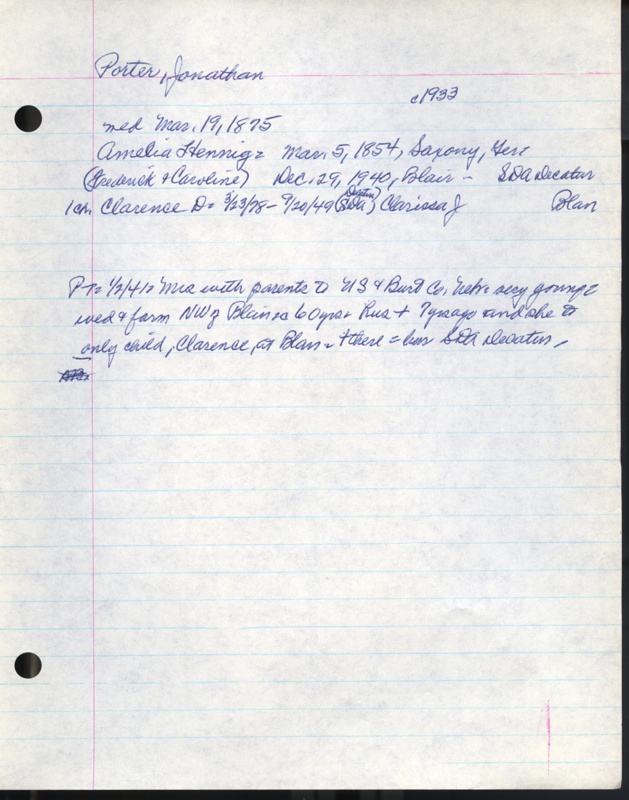 Porter, Jonathan
c1933
wed Mar. 19, 1875
Amelia Hennig = Mar. 5, 1854, Saxony, Ger
(Frederick + Caroline) Dec. 29, 1940, Blair - SDA Decatur
1 ch Clarence D = 3/23/78 - 9/20/49 (SDA) Clarissa J Blair
PT = 1/2/41 = Mrs with parents to US & Burt Co, Neb = very young =
wed & farm NW of Blair = 60 yrs = hus + 7 yrs ago and she to
only child, Clarence, at Blair - + there = bur SDA Decatur -